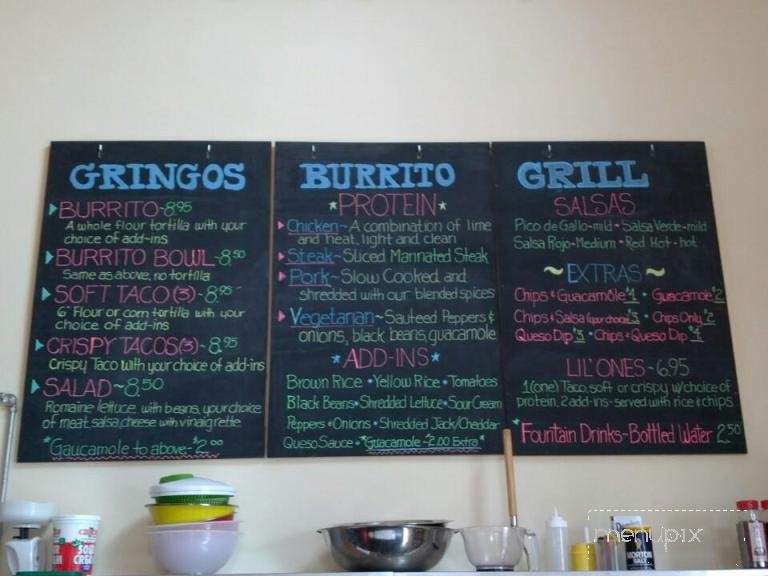 GRINGOS
BURRITO~8.95
A whole flour tortilla with your
choice of add-ins
BURRITO BOWL~8.50
Same as above, no tortilla
SOFT TACO (3)~8.95
6" Flour or corn tortilla with your
choice of add-ins
CRISPY TACOS(3)~8.95
Crispy Taco with your choice of add-ins
SALAD~8.50
Romaine lettuce with beans, your choice
of meat, salsa, cheese with vinaigrette
*Gaucamole to above~$2.00
BURRITO
*PROTEIN*
Chicken~A combination of lime
and heat, light and clean
Steak~Sliced Marinated Steak
Pork~Slow Cooked and
shredded with our blended spices
Vegetarian~Sauteed Peppers &
onions, black beans, guacamole
*ADD-INS*
Brown Rice • Yellow Rice • Tomatoes
Black Beans • Shredded Lettuce • Sour Cream
Peppers • Onions • Shredded Jack/Cheddar
Queso Sauce • *Guacamole~2.00 Extra*
GRILL
SALSAS
Pico de Gallo-mild • Salsa Verde-mild
Salsa Rojo-Medium • Red Hot-hot
~EXTRAS~
Chips & Guacamole $4 • Guacamole $2
Chips & Salsa (your choice) $3 • Chips Only $2
Queso Dip $3 • Chips & Queso Dip $4
LIL' ONES~6.95
1(one) Taco, soft or crispy w/choice of
protein, 2 add-ins-served with rice & chips
*Fountain Drinks~Bottled Water 2.50
SOUR
CREAM
MORTON
SALT
menupix